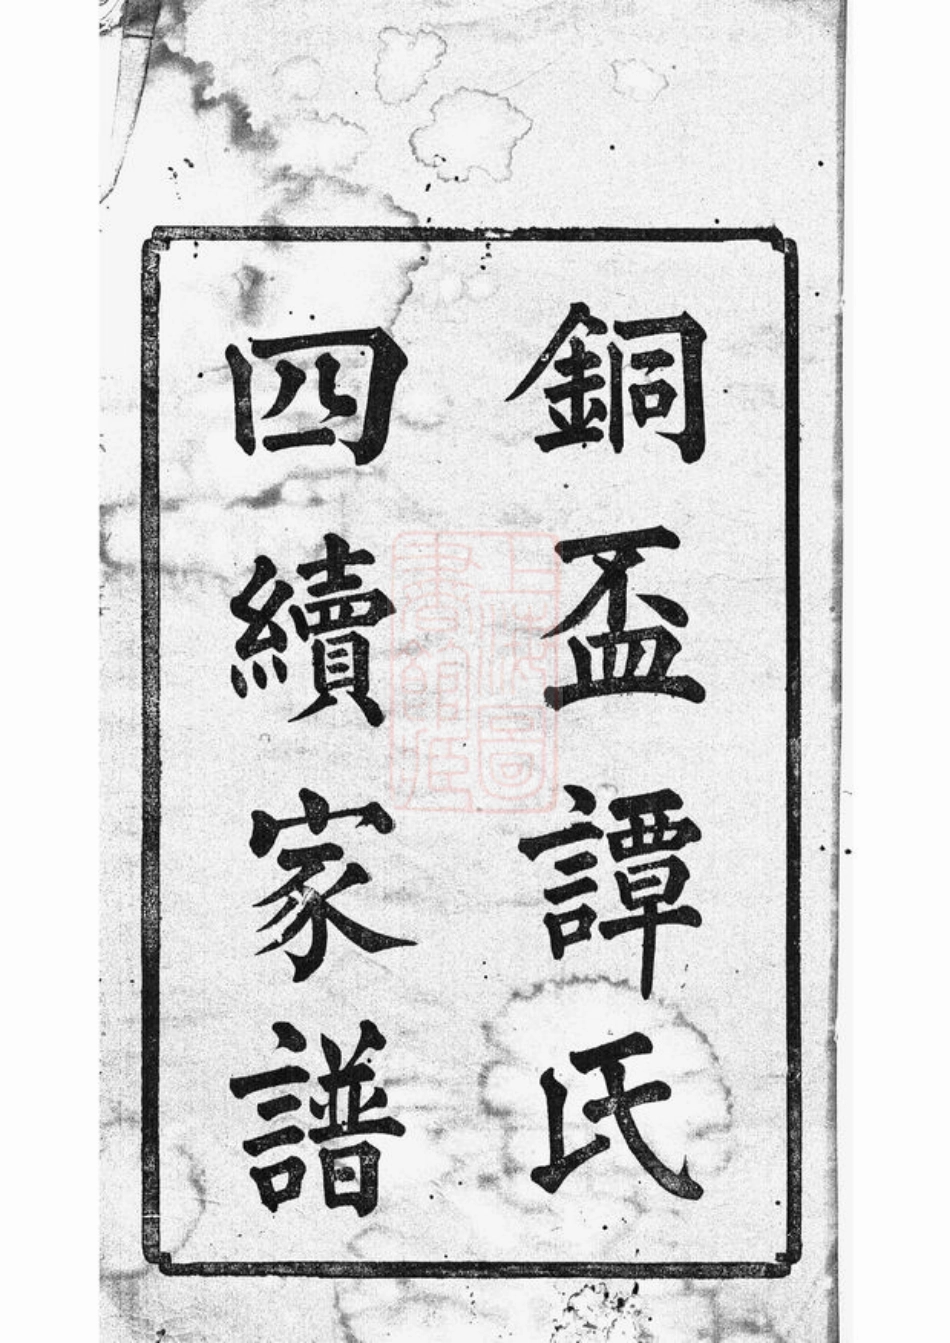 銅盃譚氏
四續家譜
上海圖
書館藏